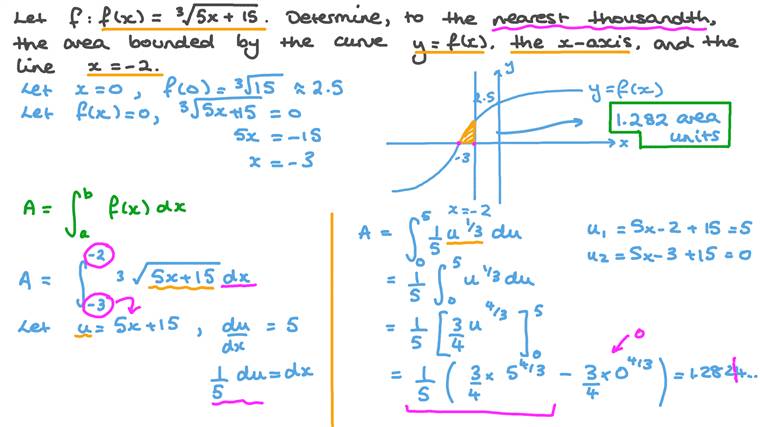 Let f : f(x) = ³√5x + 15. Determine, to the nearest thousandth,
the area bounded by the curve y = f(x), the x-axis, and the
line x = -2.
Let x = 0, f(0) = ³√15 ≈ 2.5
Let f(x) = 0, ³√5x+15 = 0
5x = -15
x = -3
y
2.5
y = f(x)
1.282 area
units
x
-3
x = -2
A = ∫ₐᵇ f(x) dx
A = ∫₋₃⁻² ³√5x+15 dx
Let u = 5x+15, du/dx = 5
1/5 du = dx
A = ∫₀⁵ 1/5 u^1/3 du
= 1/5 ∫₀⁵ u^1/3 du
= 1/5 [3/4 u^4/3]₀⁵
0
= 1/5 (3/4 × 5^4/3 - 3/4 × 0^4/3) = 1.2824...
u₁ = 5x-2 + 15 = 5
u₂ = 5x-3 + 15 = 0